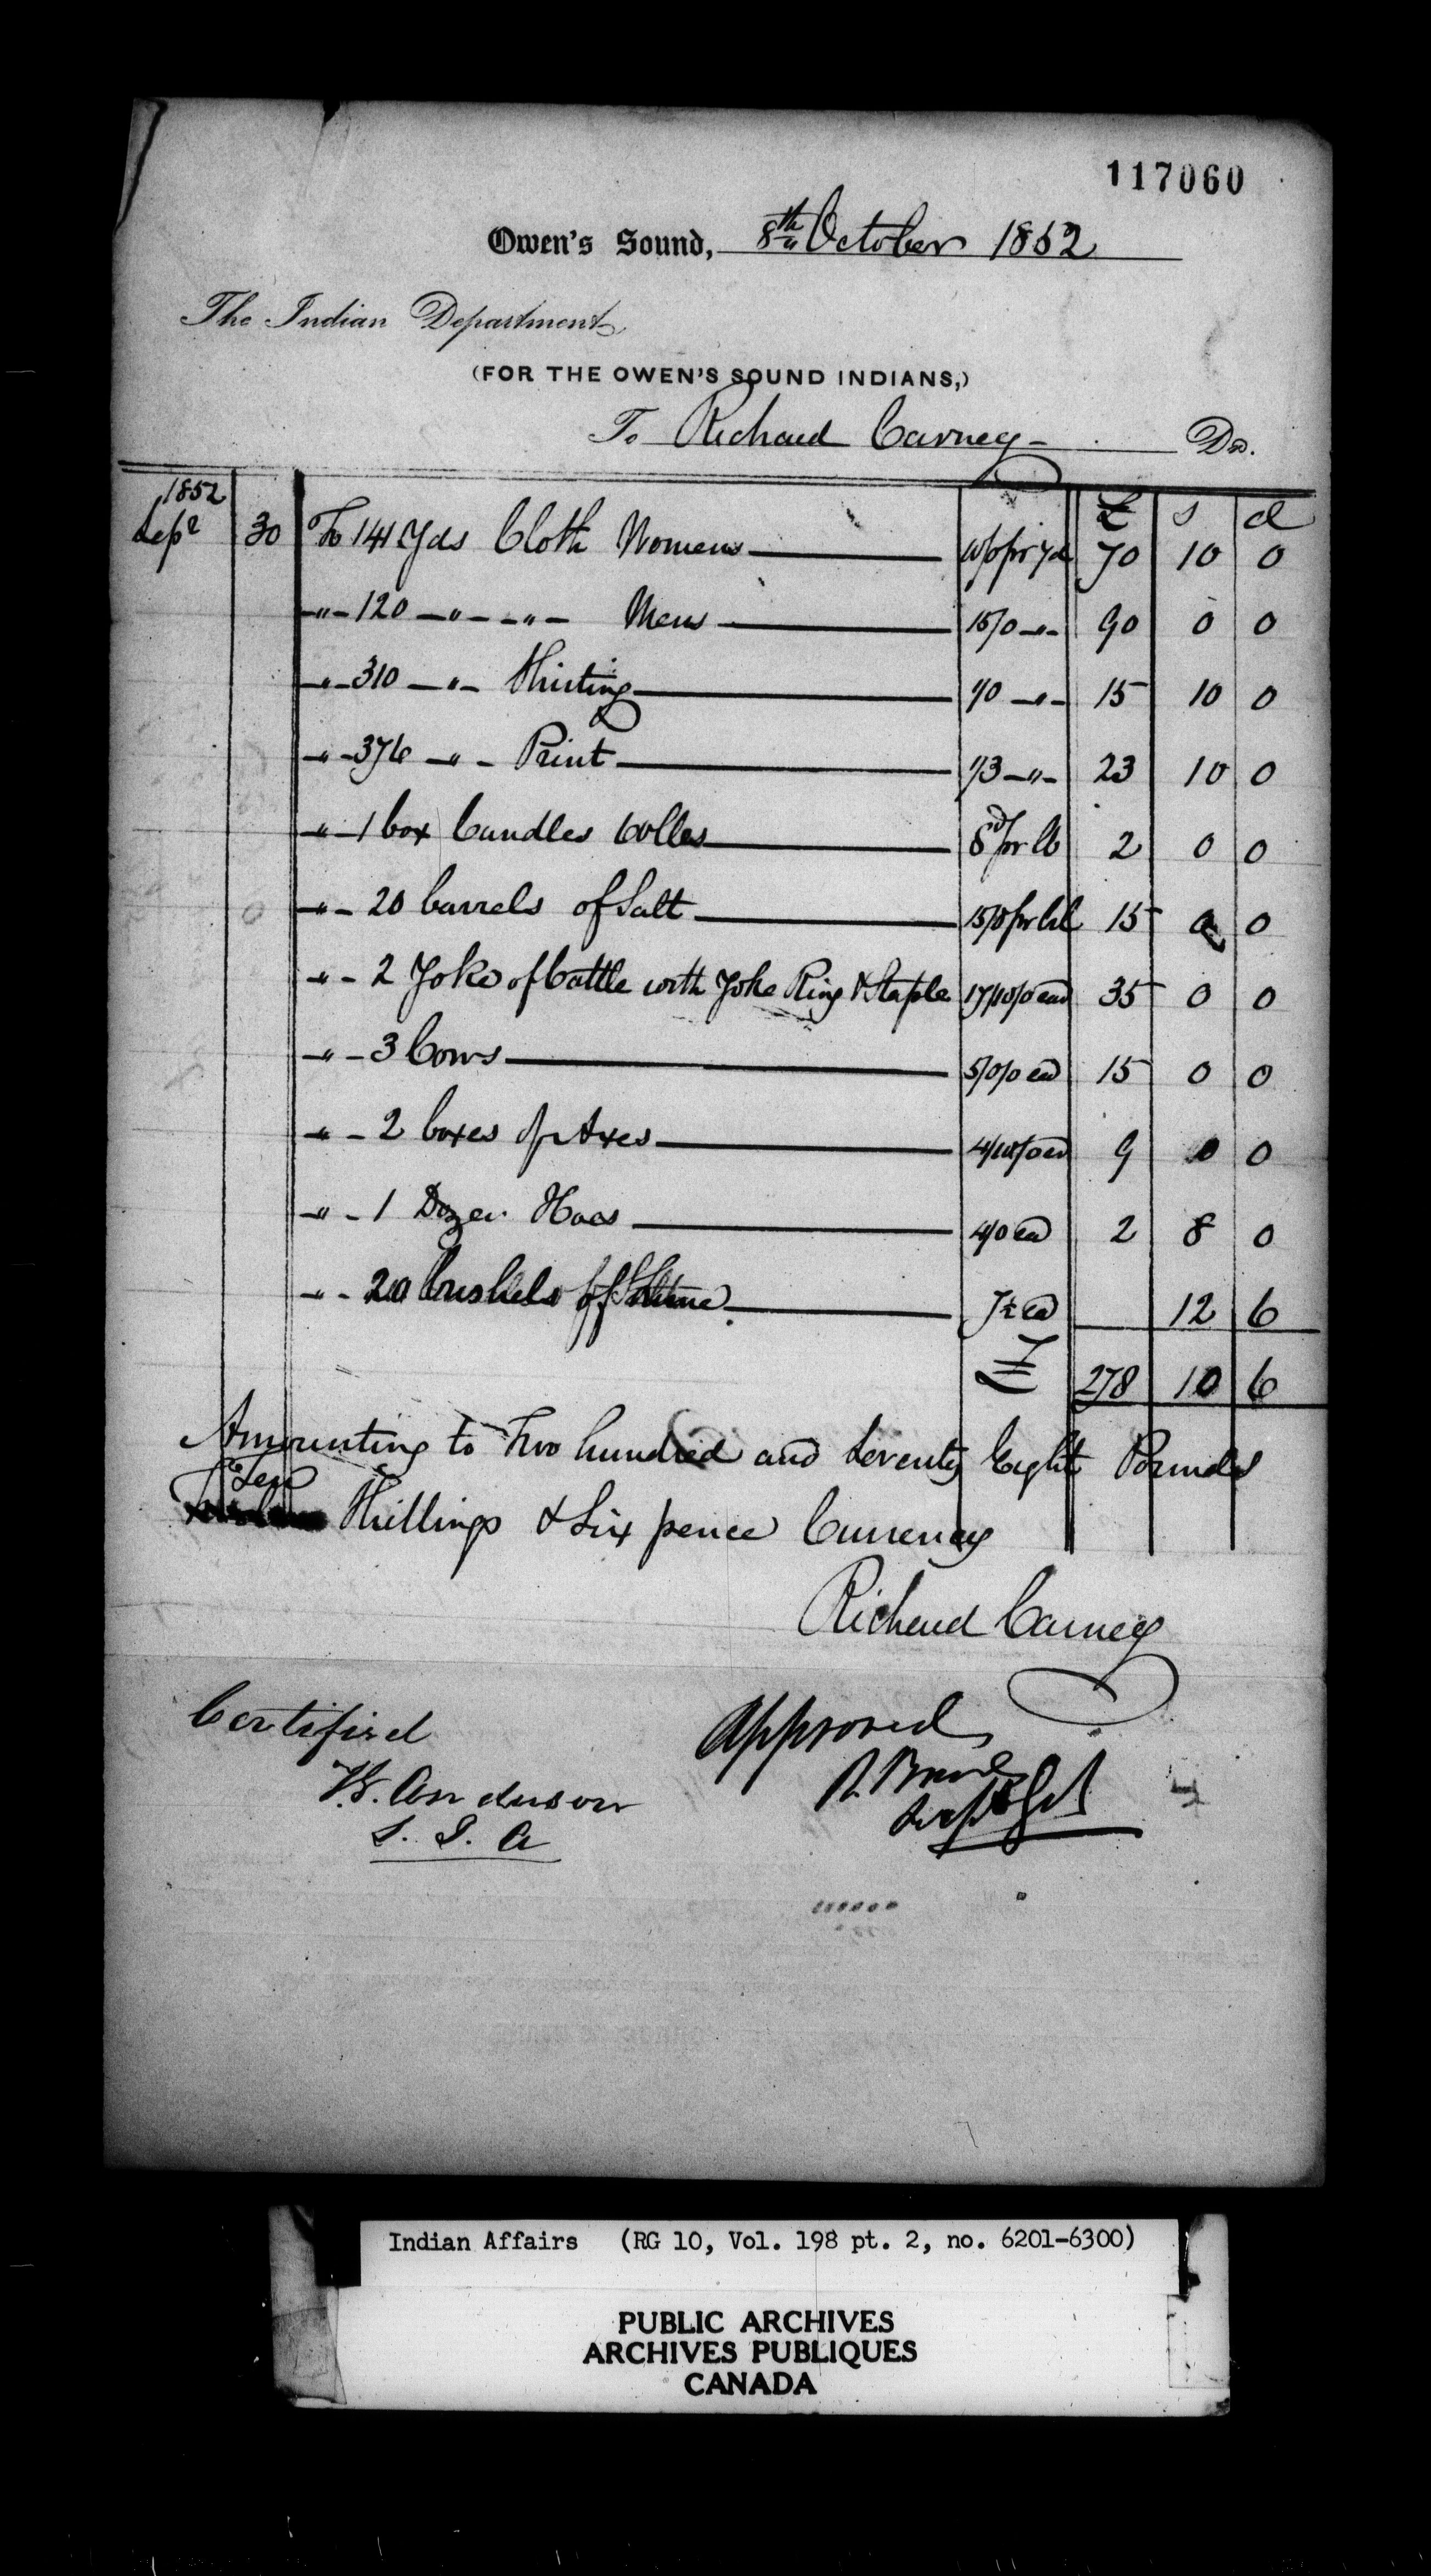 117060
Owen's Sound, 8th October 1852
The Indian Department
(FOR THE OWEN'S SOUND INDIANS,)
To Richard Carney Dr.
1852 £ s d
Sepr 30 To 141 Yds Cloth Womens 10/0 pr yd 70 10 0
" 120 " " Mens 15/0 " 90 0 0
" 310 " Shirting 1/0 " 15 10 0
" 376 " Print 1/3 " 23 10 0
" 1 box Candles 60lbs 8d pr lb 2 0 0
" 20 barrels of Salt 15/0 pr brl 15 0 0
" 2 Yoke of Cattle with Yoke Ring & Staple 17/10/0 each 35 0 0
" 3 Cows 5/0/0 ea 15 0 0
" 2 boxes of Axes 4/10/0 ea 9 0 0
" 1 Dozen Hoes 4/0 ea 2 8 0
" 20 bushels of Lime 7½ ea 12 6
£ 278 10 6
Amounting to Two hundred and Seventy Eight Pounds
Ten
Shillings & Six pence Currency
Richard Carney
Certified
Approved
T.G. Anderson
S. I. A
Indian Affairs (RG 10, Vol. 198 pt. 2, no. 6201-6300)
PUBLIC ARCHIVES
ARCHIVES PUBLIQUES
CANADA